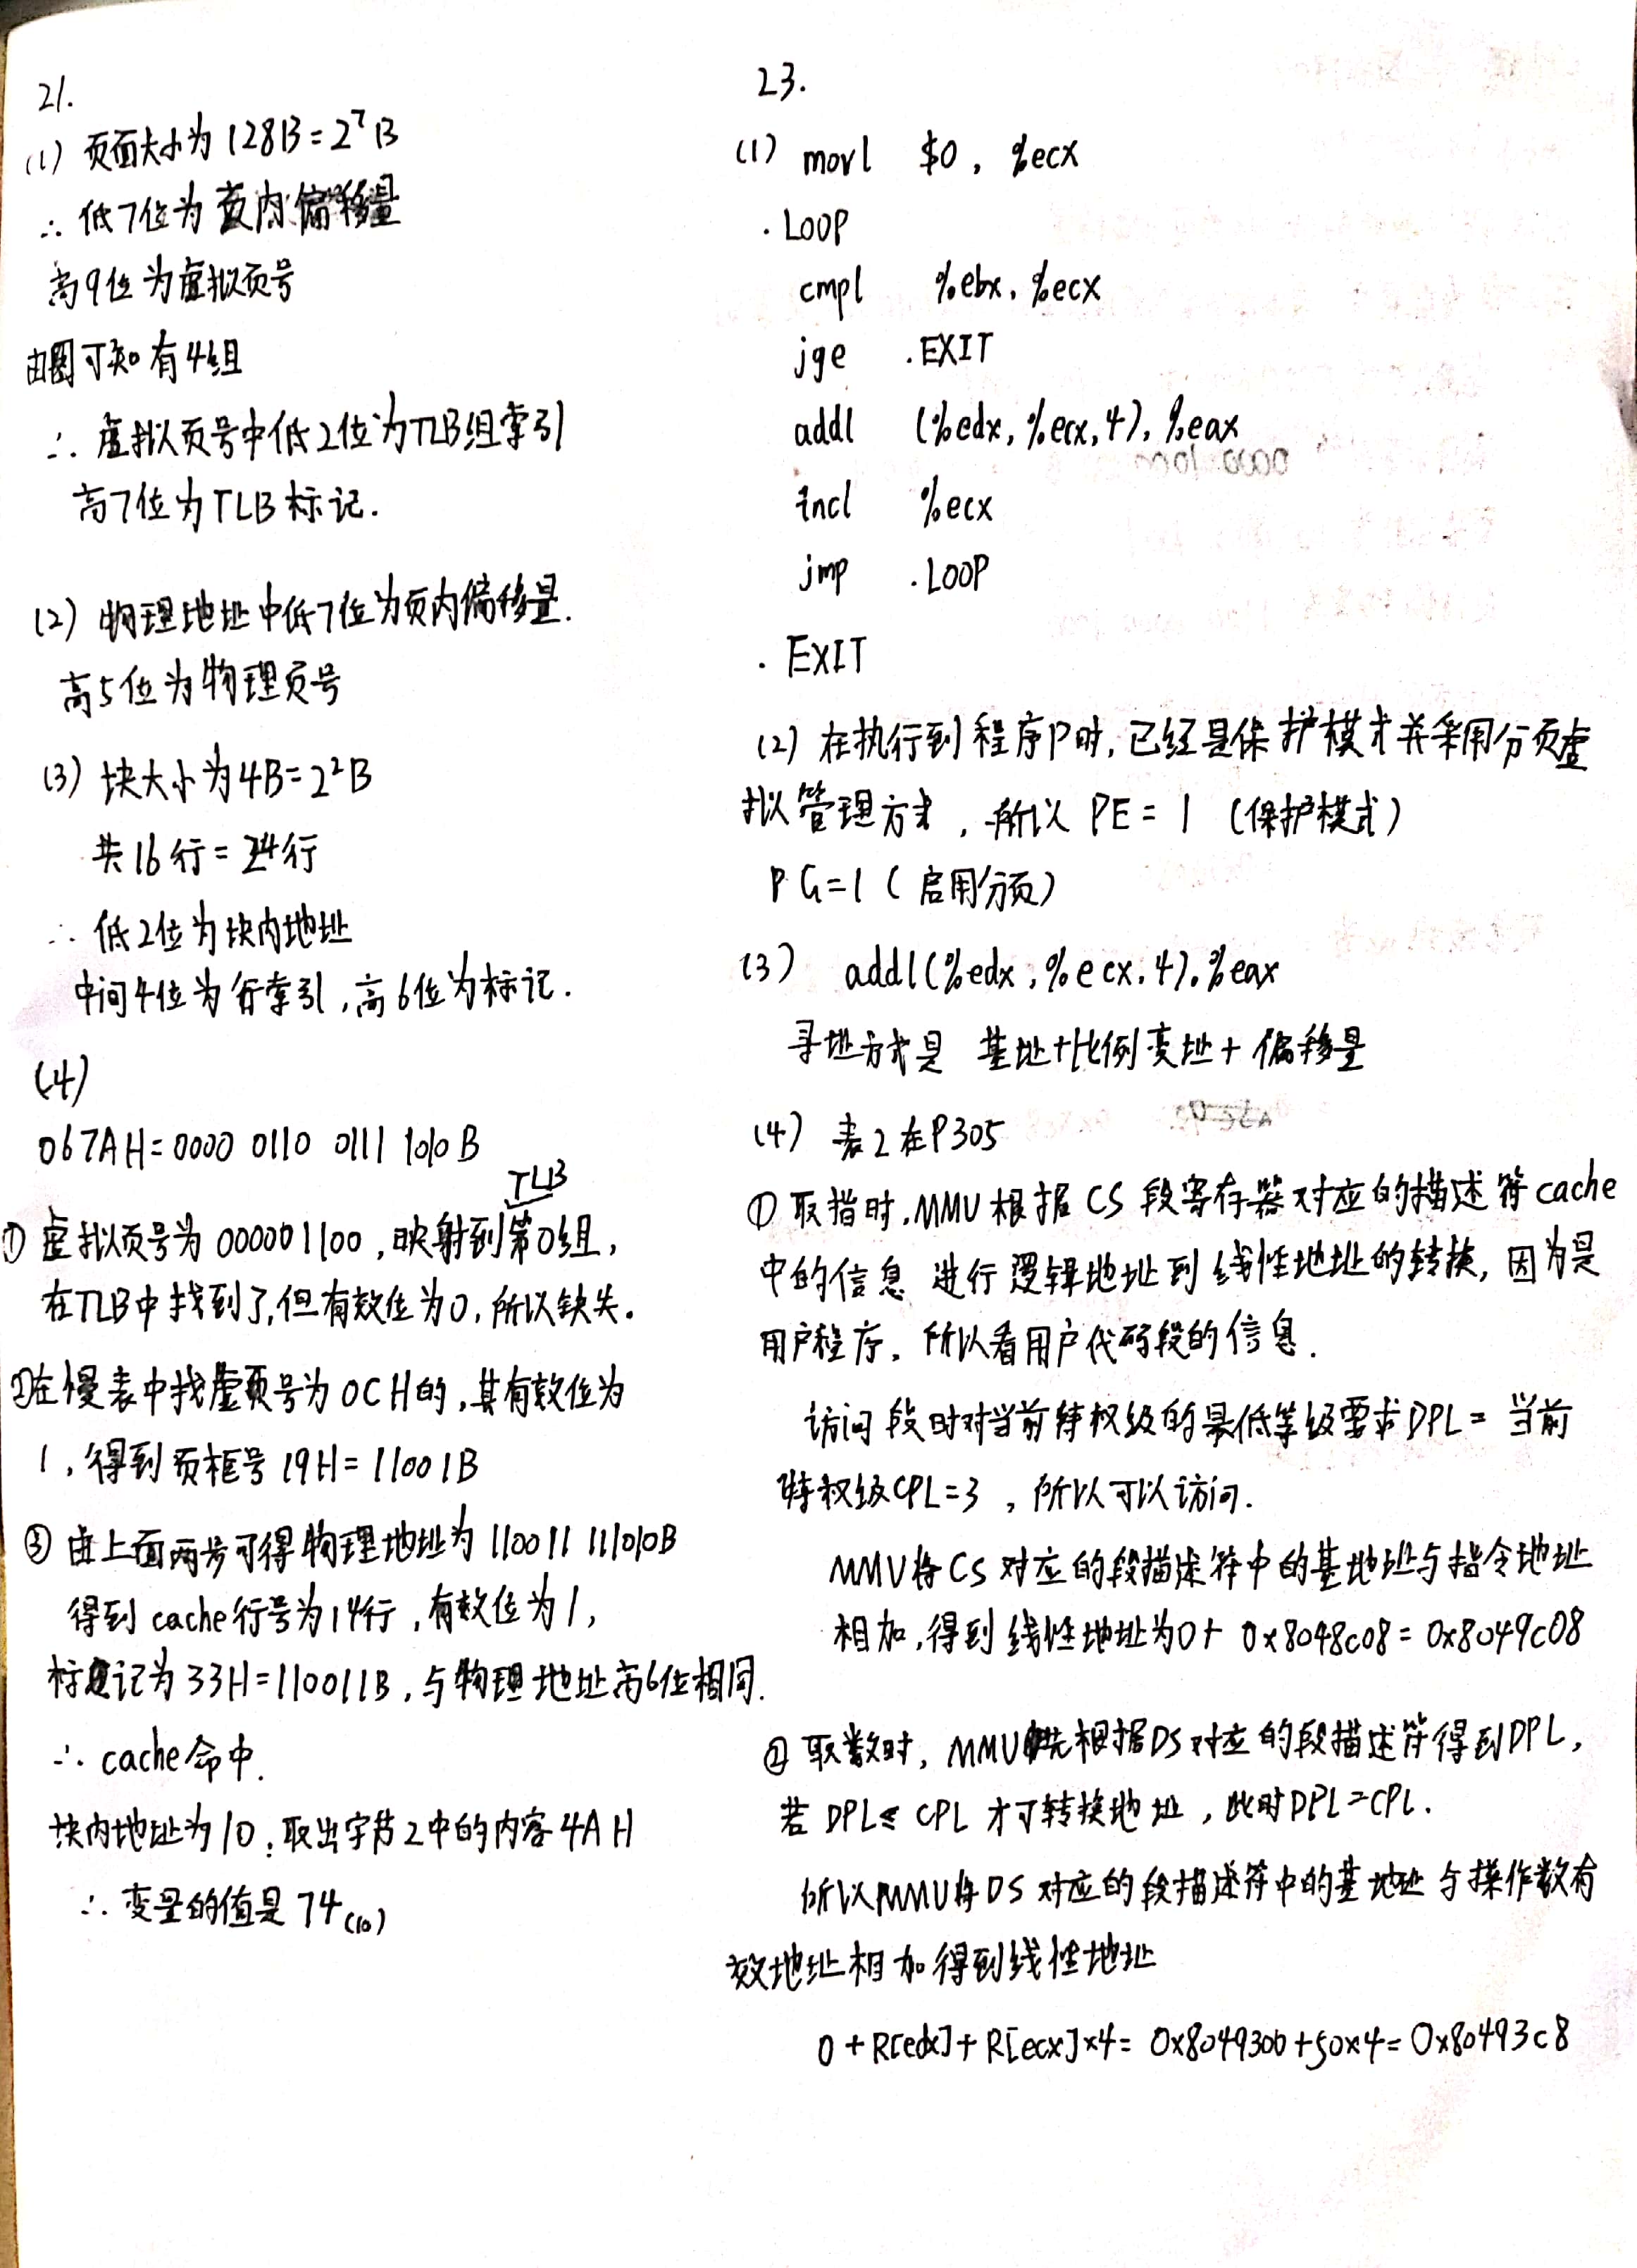 21.
(1) 页面大小为128B=2⁷B
∴ 低7位为页内偏移量
高9位为虚拟页号
由图可知有4组
∴ 虚拟页号中低2位为TLB组索引
高7位为TLB标记.
(2) 物理地址中低7位为页内偏移量.
高5位为物理页号
(3) 块大小为4B=2²B
共16行=24行
∴ 低2位为块内地址
中间4位为行索引,高6位为标记.
(4)
067AH=0000 0110 0111 1010B
① 虚拟页号为000001100,映射到TLB第0组,
在TLB中找到了,但有效位为0,所以缺失.
②在慢表中找虚页号为0CH的,其有效位为
1,得到页框号19H=11001B
③ 由上面两步可得物理地址为110011111010B
得到cache行号为14行,有效位为1,
标记为33H=110011B,与物理地址高6位相同.
∴ cache命中.
块内地址为10,取出字节2中的内容4AH
∴ 变量的值是74(10)
23.
(1) movl $0, %ecx
.LOOP
cmpl %ebx, %ecx
jge .EXIT
addl (%edx, %ecx, 4), %eax
incl %ecx
jmp .LOOP
.EXIT
(2) 在执行到程序P时,已经是保护模式并采用分页虚
拟管理方式,所以PE=1 (保护模式)
PG=1 (启用分页)
(3) addl(%edx, %ecx, 4), %eax
寻址方式是 基址+比例变址+偏移量
(4) 表2在P305
① 取指时,MMU根据CS段寄存器对应的描述符cache
中的信息 进行逻辑地址到线性地址的转换,因为是
用户程序,所以看用户代码段的信息.
访问段时对当前特权级的最低等级要求DPL=当前
特权级CPL=3,所以可以访问.
MMU将CS对应的段描述符中的基地址与指令地址
相加,得到线性地址为0+ 0x8048c08=0x8049c08
② 取数时,MMU先根据DS对应的段描述符得到DPL,
若DPL≤CPL才可转换地址,此时DPL=CPL.
所以MMU将DS对应的段描述符中的基地址与操作数有
效地址相加得到线性地址
0+R[edx]+R[ecx]×4=0x8049300+50×4=0x80493c8